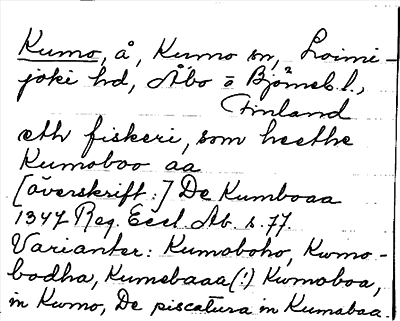 Kumo, å, Kumo sn, Loimi-
joki hd, Åbo o Björneb. l.,
Finland
eth fiskeri, som heethe
Kumoboo aa
[överskrift:] De Kumboaa
1347 Reg. Eccl. Ab. s. 77.
Varianter: Kumoboho, Kwmo-
bodha, Kumebaaa(!) Kwmoboa,
in Kwmo, De piscatura in Kumabaa.